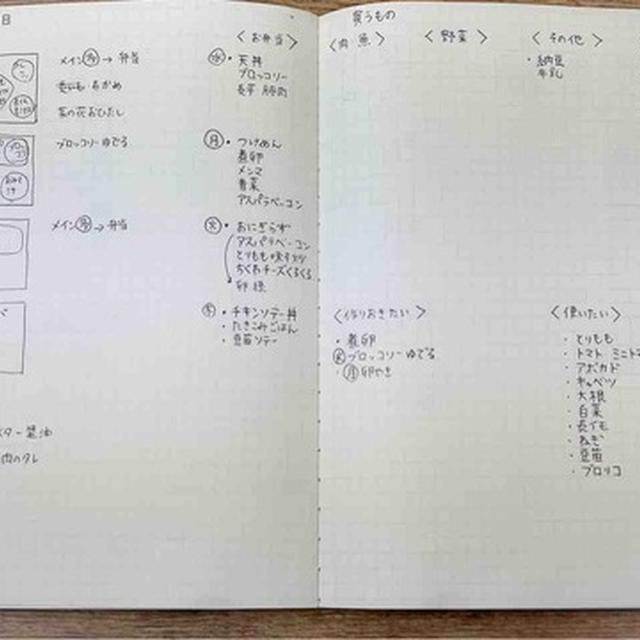 日
メイン多→弁当
菜の花おひたし
ブロッコリーゆでる
メイン多→弁当
ター醤油
肉のタレ
〈お弁当〉
水・天丼
ブロッコリー
長芋 豚肉
月・つけめん
煮卵
メンマ
青菜
アスパラベーコン
火・おにぎらず
アスパラベーコン
とりもも味そ炒め
ちくわチーズくるくる
卵焼
・チキンソテー丼
・たきこみごはん
・豆苗ソテー
買うもの
〈肉 魚〉
〈野菜〉
〈その他〉
・納豆
牛乳
〈作りおきたい〉
・煮卵
ブロッコリーゆでる
・月卵やき
〈使いたい〉
・とりもも
・トマト ミニト
・アボカド
・キャベツ
・大根
・白菜
・長イモ
・ねぎ
・豆苗
・ブロッコ